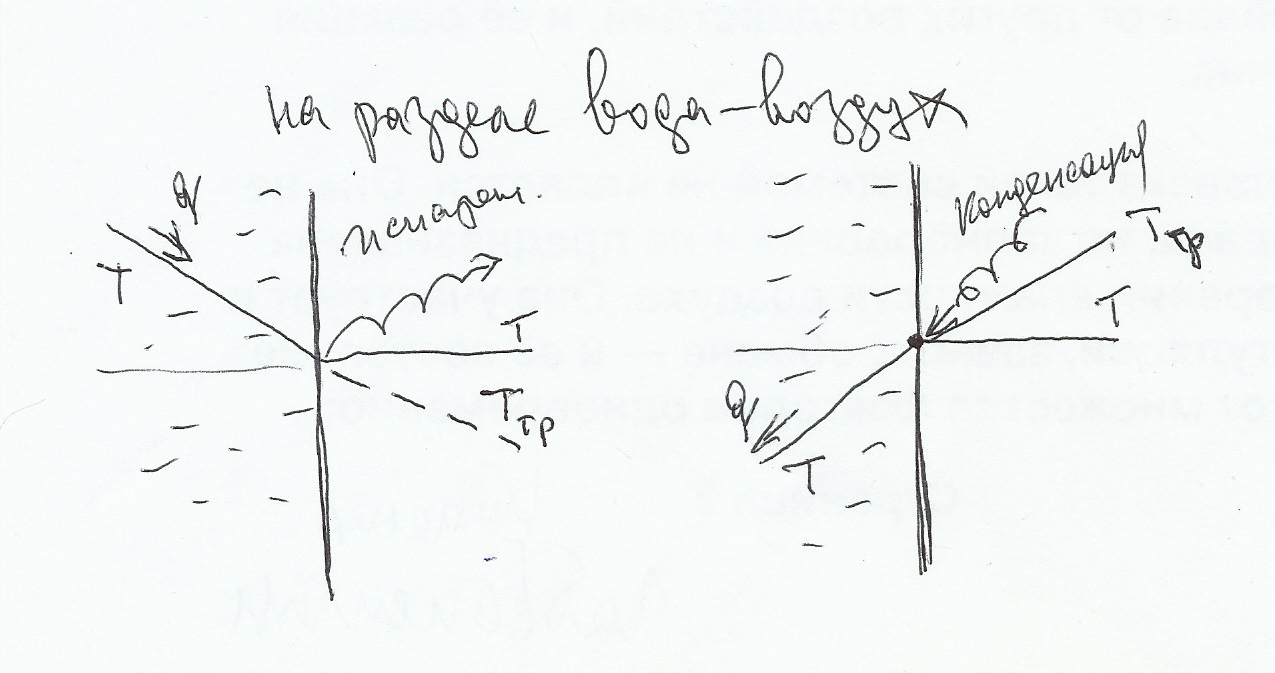 на разделе вода–воздух
q
испарен.
T
T
Tтр
конденсация
Tтр
T
q
T